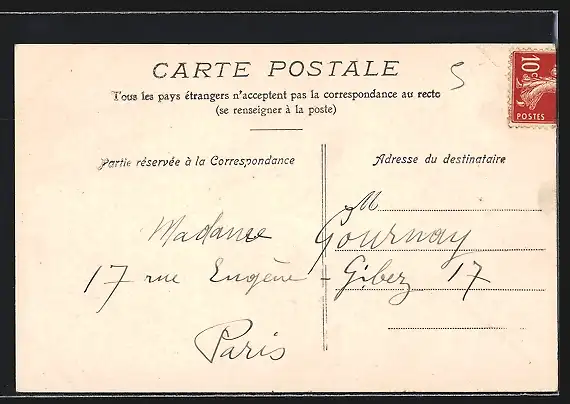 CARTE POSTALE
5
Tous les pays étrangers n'acceptent pas la correspondance au recto
(se renseigner à la poste)
10c
POSTES
Partie réservée à la Correspondance
Adresse du destinataire
M
Madame Gournay
17 rue Eugène - Gibez 17
Paris